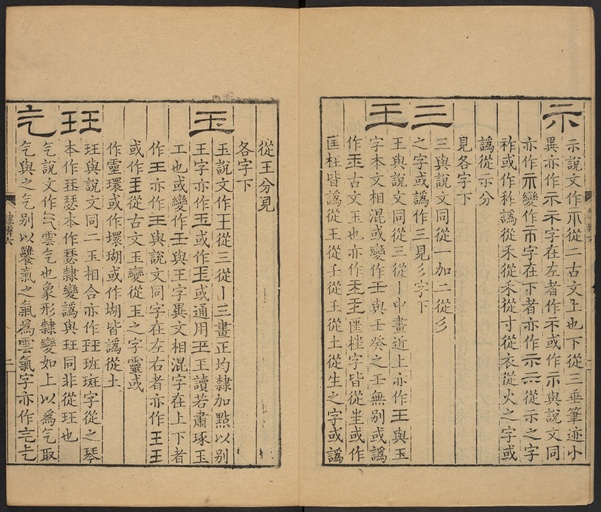 示
示說文作示從二古文上也下從三垂筆迹小
異亦作示示字在左者作示或作示與說文同
亦作示變作示字在下者亦作示從示之字
祚或作秨譌從禾從禾從寸從衣從火之字或
譌從示分
見各字下
三
三與說文同從一加二從彡
之字或譌作三見彡字下
王
王與說文同從三從丨中畫近上亦作王與玉
字本文相混或變作王與壬癸之壬無別或譌
作玉古文玉也亦作匡匩字皆從㞷或作
匡枉皆譌從王從壬從王從土從生之字或譌
從王分見
各字下
玉
玉說文作王從三從丨三畫正均隸加點以別
王字亦作玉或作玉或通用玉玉讀若肅琢玉
工也或變作王與王字異文相混字在上下者
作王亦作王與說文同字在左右者亦作王王
或作王從古文玉變從玉之字靈或
作靈環或作壞瑚或作堋皆譌從土
玨
玨與說文同二玉相合亦作玨班斑字從之琴
本作珡瑟本作瑟隸變譌與玨同非從玨也
气
气說文作气雲气也象形隸變如上以爲乞取
乞與之乞別以饔氣之氣爲雲气字亦作乞乞
隸辨六
二